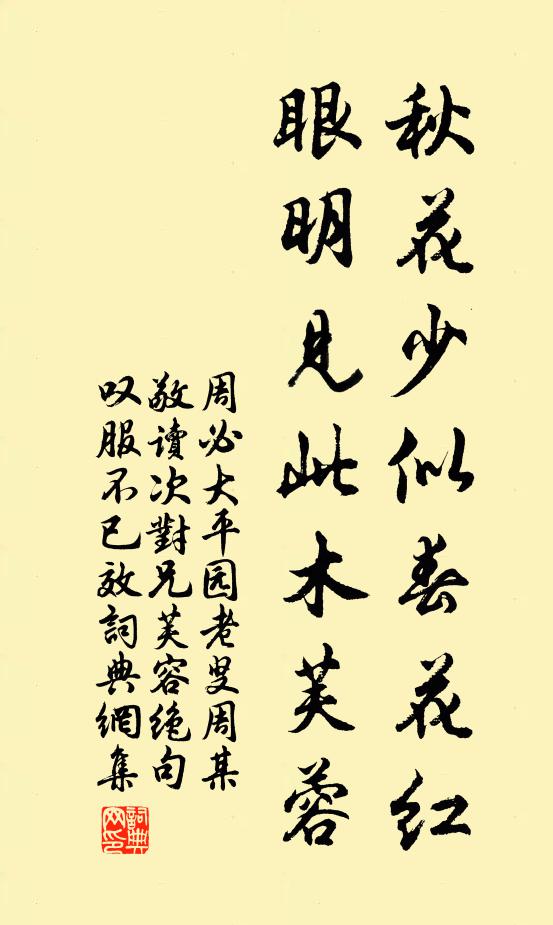 秋花少似春花红
眼明见此木芙蓉
周必大平园老叟周某
敬讀次對兄芙容绝句
叹服不已效詞典網集
詞典
网印